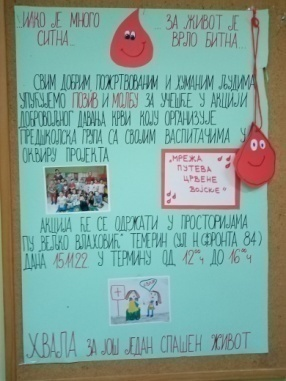 ...ИАКО ЈЕ МНОГО
СИТНА...
...ЗА ЖИВОТ ЈЕ
ВРЛО БИТНА...
СВИМ ДОБРИМ ПОЖРТВОВАНИМ И ХУМАНИМ ЉУДИМА
УПУЋУЈЕМО ПОЗИВ И МОЛБУ ЗА УЧЕШЋЕ У АКЦИЈИ
ДОБРОВОЉНОГ ДАВАЊА КРВИ КОЈУ ОРГАНИЗУЈЕ
ПРЕДШКОЛСКА ГРУПА СА СВОЈИМ ВАСПИТАЧИМА У
ОКВИРУ ПРОЈЕКТА
„МРЕЖА
ПУТЕВА
ЦРВЕНЕ
ВОЈСКЕ"
АКЦИЈА ЋЕ СЕ ОДРЖАТИ У ПРОСТОРИЈАМА
ПУ „ВЕЉКО ВЛАХОВИЋ" ТЕМЕРИН (УЛ. Н. ФРОНТА 84)
ДАНА 15.11.22. У ТЕРМИНУ ОД 12 ДО 16
ХВАЛА ЗА ЈОШ ЈЕДАН СПАШЕН ЖИВОТ